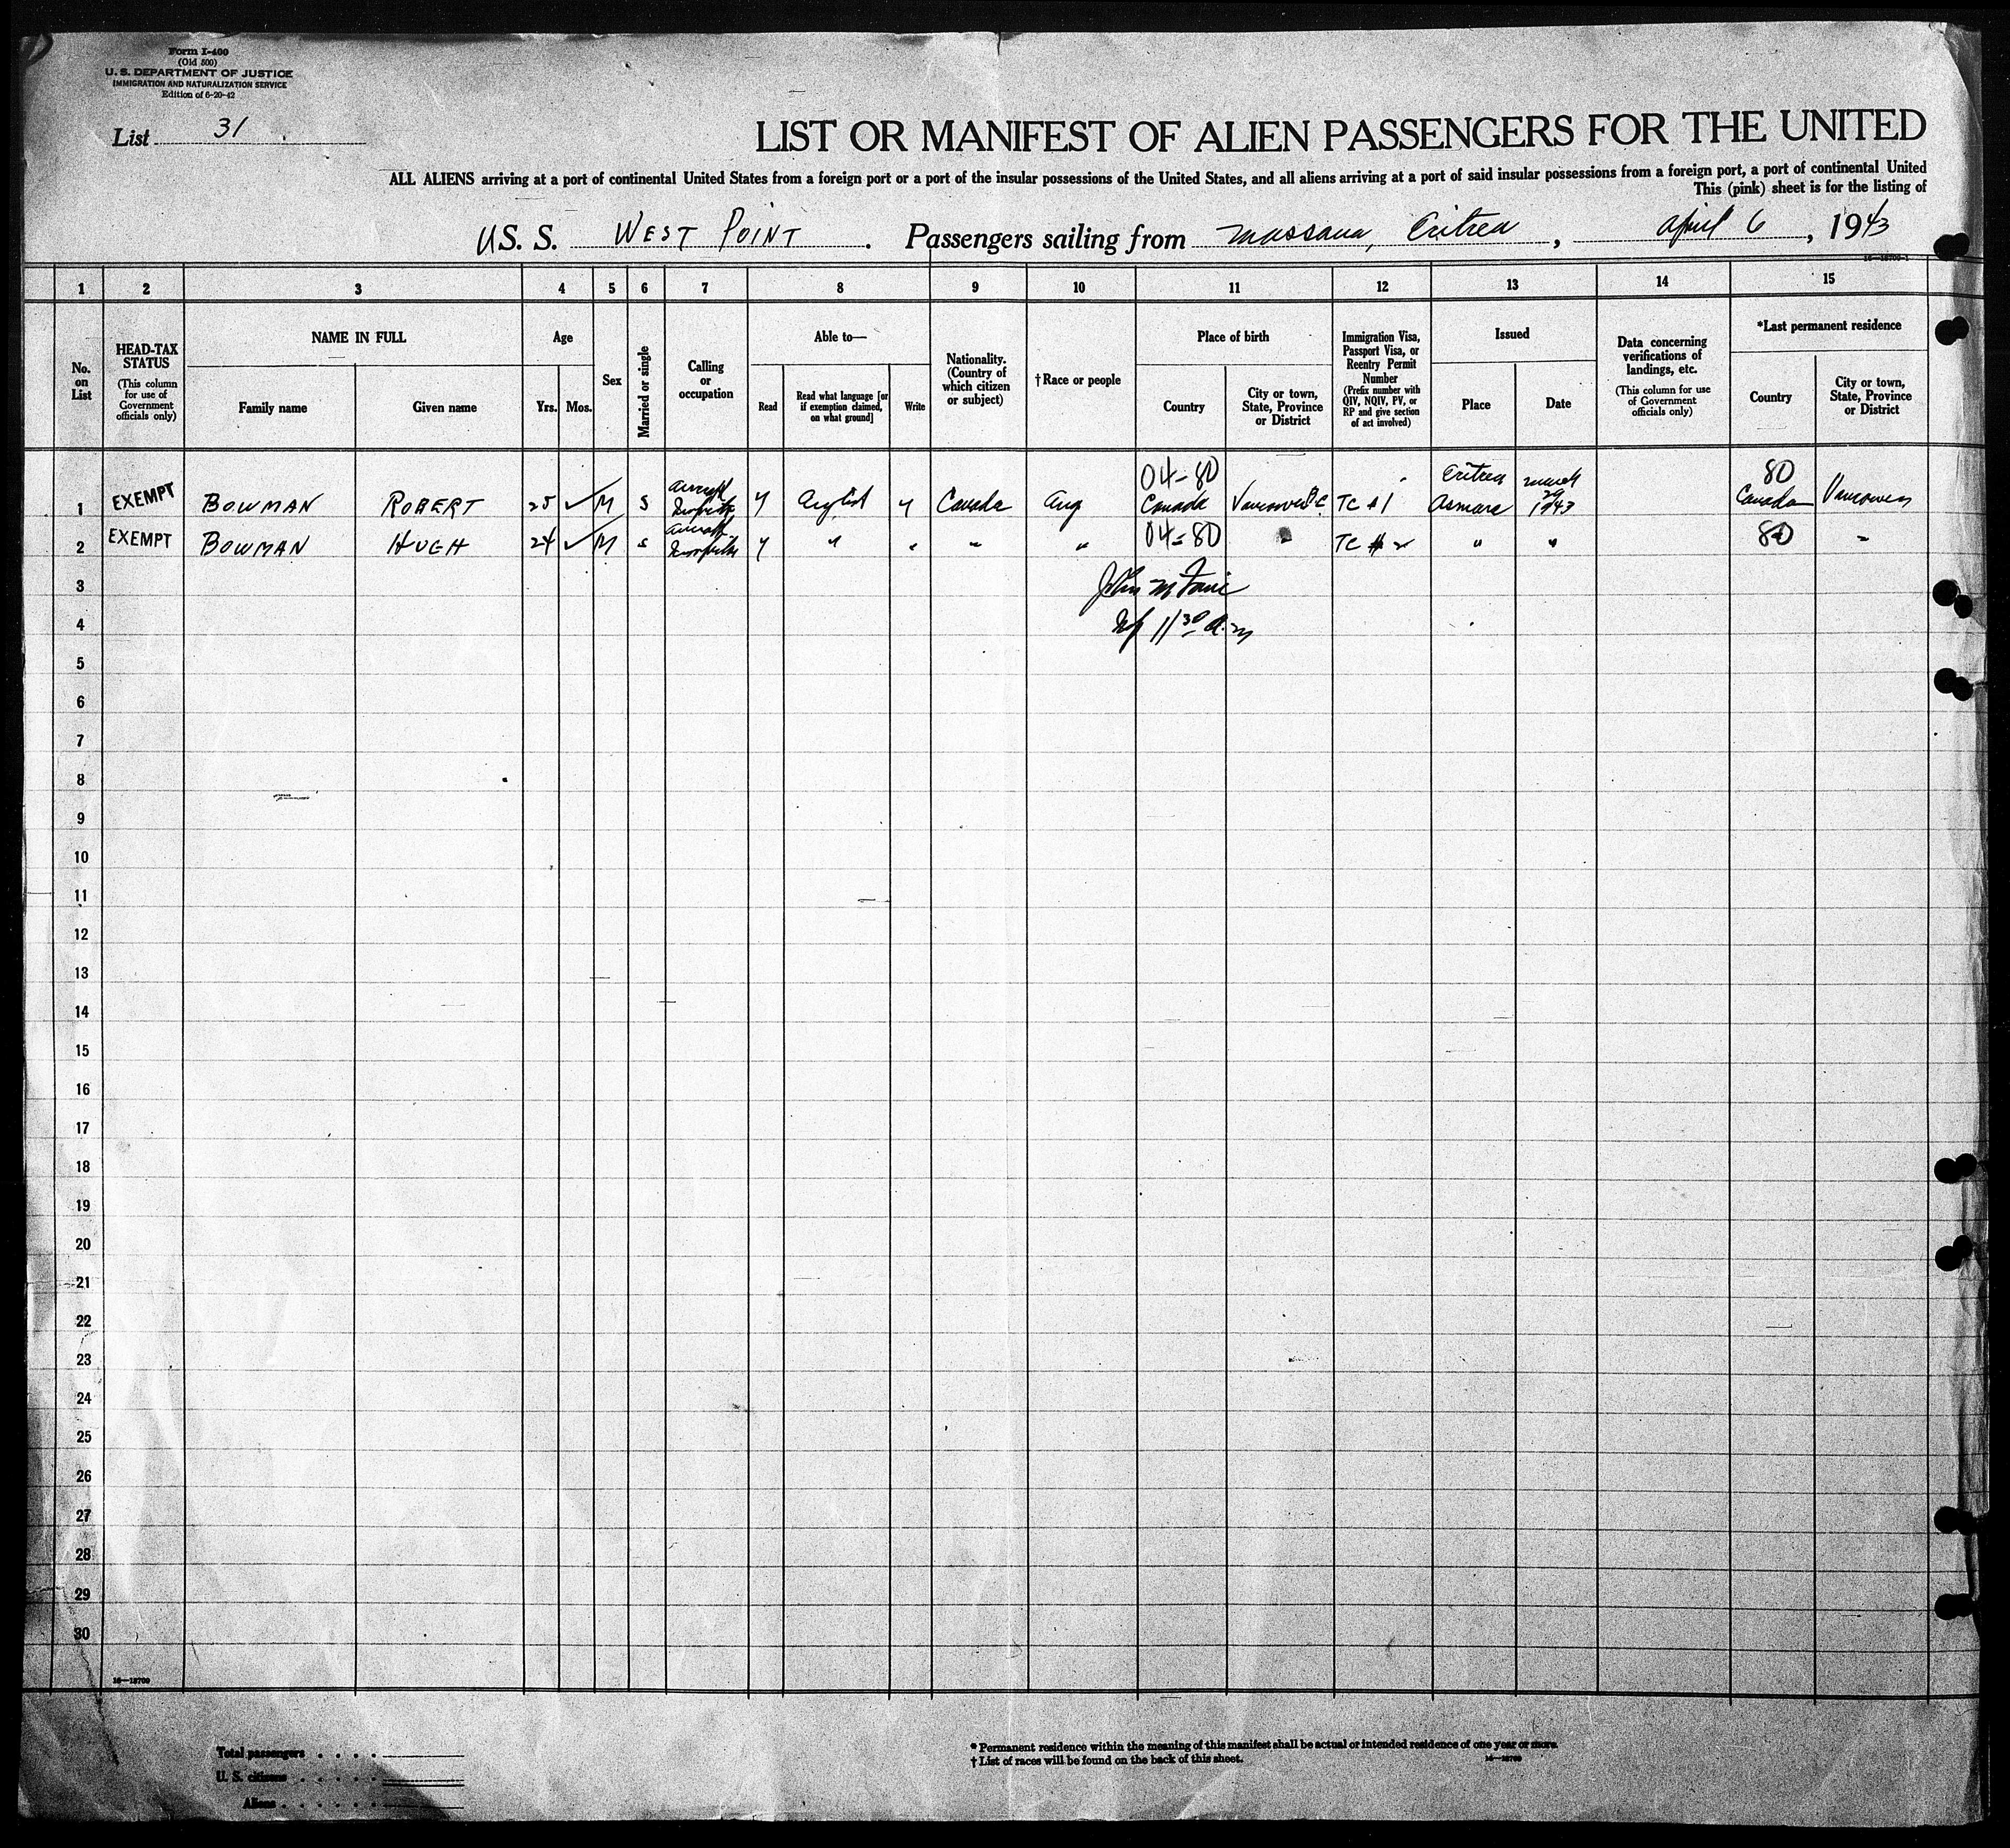 Form I-400
(Old 500)
U. S. DEPARTMENT OF JUSTICE
IMMIGRATION AND NATURALIZATION SERVICE
Edition of 6-20-42
List 31
LIST OR MANIFEST OF ALIEN PASSENGERS FOR THE UNITED
ALL ALIENS arriving at a port of continental United States from a foreign port or a port of the insular possessions of the United States, and all aliens arriving at a port of said insular possessions from a foreign port, a port of continental United
This (pink) sheet is for the listing of
U.S. S. WEST POINT . Passengers sailing from Massaua, Eritrea , April 6 , 1943
1 2 3 4 5 6 7 8 9 10 11 12 13 14 15
No. on List
HEAD-TAX STATUS
(This column for use of Government officials only)
NAME IN FULL
Family name
Given name
Age
Yrs. Mos.
Sex
Married or single
Calling or occupation
Able to—
Read
Read what language [or if exemption claimed, on what ground]
Write
Nationality. (Country of which citizen or subject)
†Race or people
Place of birth
Country
City or town, State, Province or District
Immigration Visa, Passport Visa, or Reentry Permit Number
(Prefix number with QIV, NQIV, PV, or RP and give section of act involved)
Issued
Place
Date
Data concerning verifications of landings, etc.
(This column for use of Government officials only)
*Last permanent residence
Country
City or town, State, Province or District
04-80 Eritrea March 80
1 EXEMPT BOWMAN ROBERT 25 ✓ M S Aircraft y English y Canada Canada Vancouver B.C. TC #1 Asmara 29 1943 Canada Vancouver
2 EXEMPT BOWMAN HUGH 24 ✓ M s Aircraft y " " " " 04-80 " TC # 2 " " 80 "
3 John M
4 11 30 a.m
5
6
7
8
9
10
11
12
13
14
15
16
17
18
19
20
21
22
23
24
25
26
27
28
29
30
16—18700
Total passengers . . . .
U. S. citizens . . . . .
Aliens . . . . . .
* Permanent residence within the meaning of this manifest shall be actual or intended residence of one year or more.
† List of races will be found on the back of this sheet. 16—18700